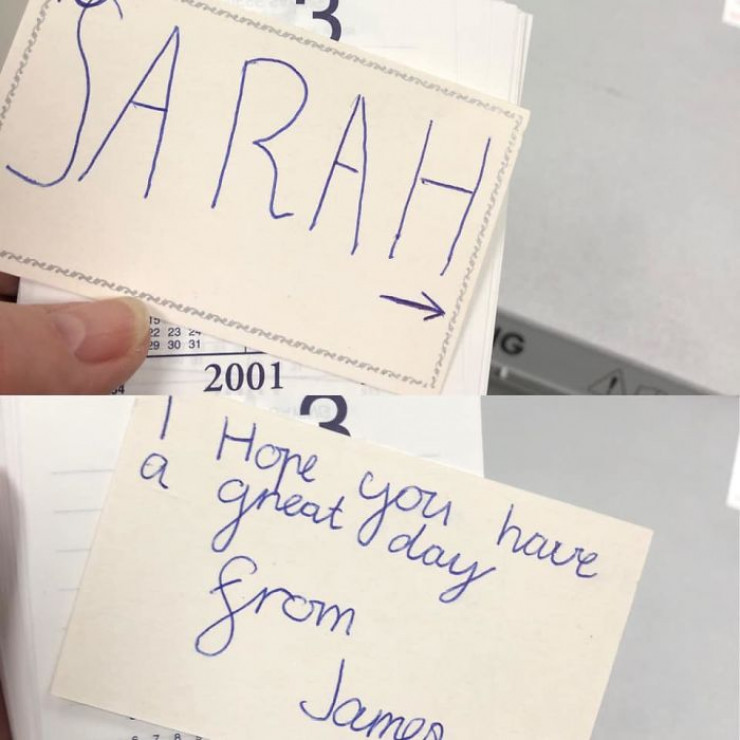 3
SARAH
→
15
22 23 24
29 30 31
2001
NG
3
I Hope you have
a great day
from
James
6 7 8